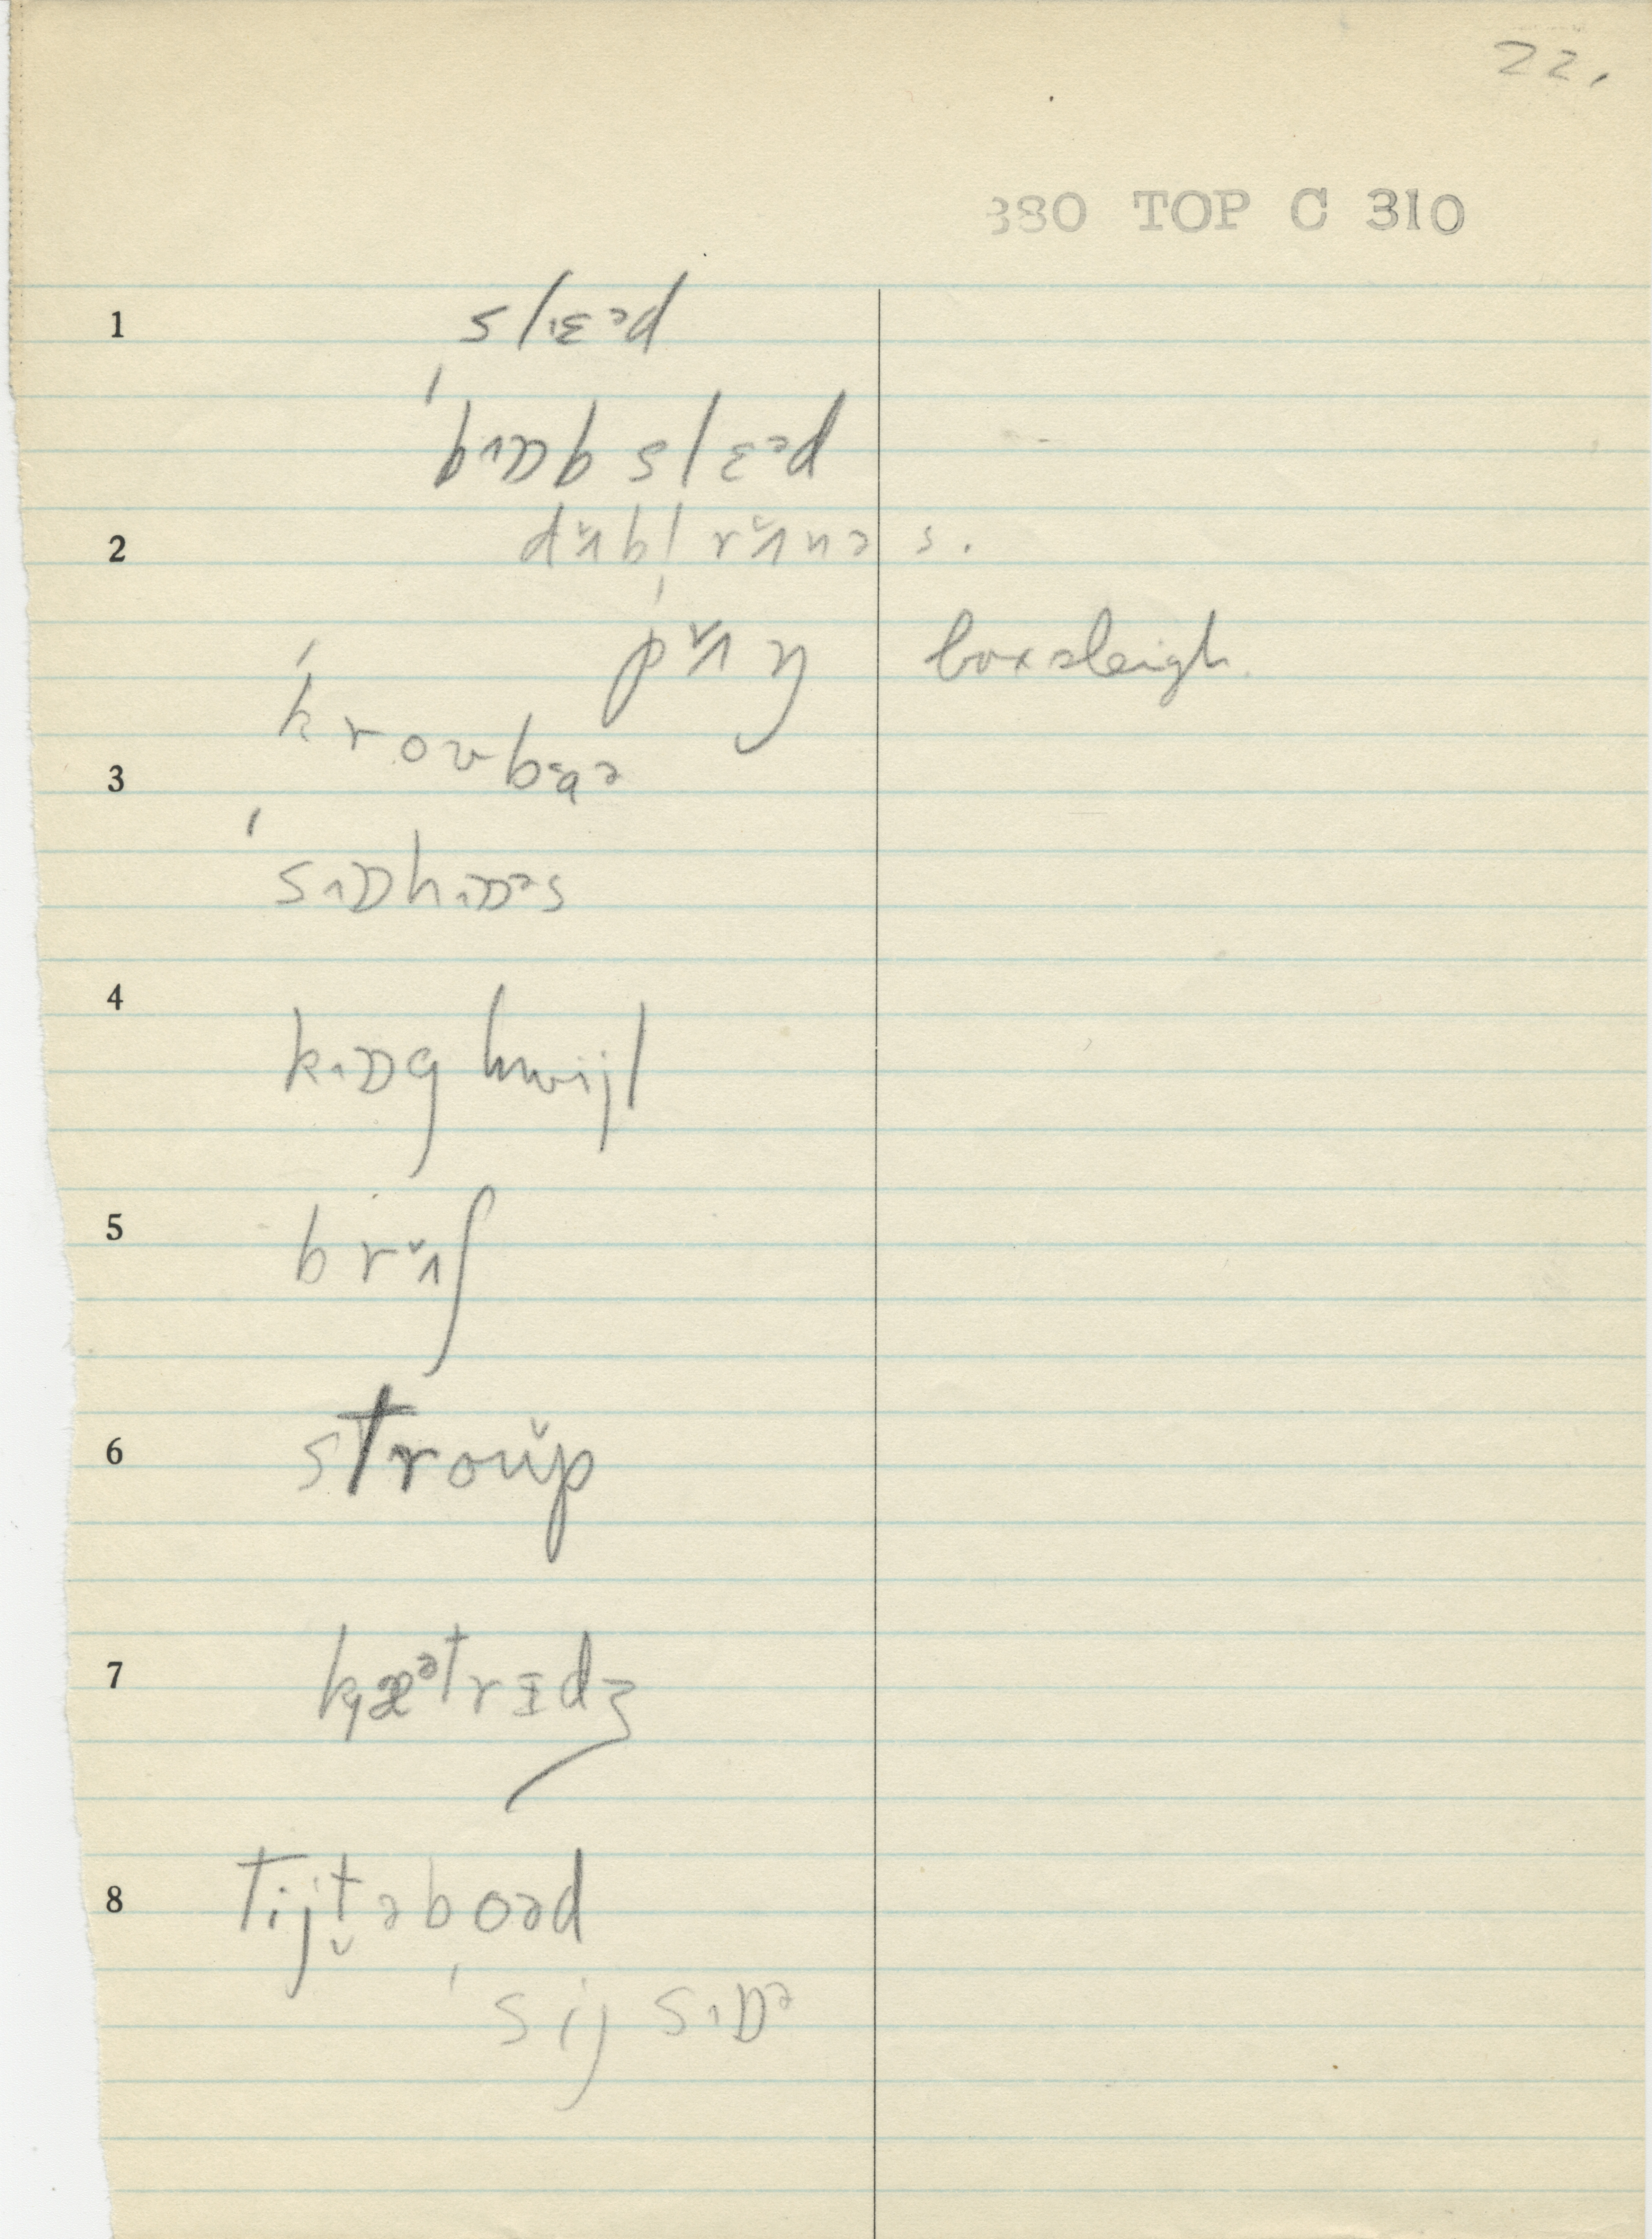 22.
380 TOP C 310
1
slɛəd
ˈbɒb slɛəd
2 dʌ̆bl rʌ̆nəs.
ˈpʌ̆ŋ boxsleigh.
ˈkroʊbaə
3
ˈsɒhɒəs
4
kɒg hwijl
5 brʌ̆ʃ
6 stroŭp
7 kæᵊtrɪdʒ
8 tijt̬əboəd
ˈsij sɒᵊ